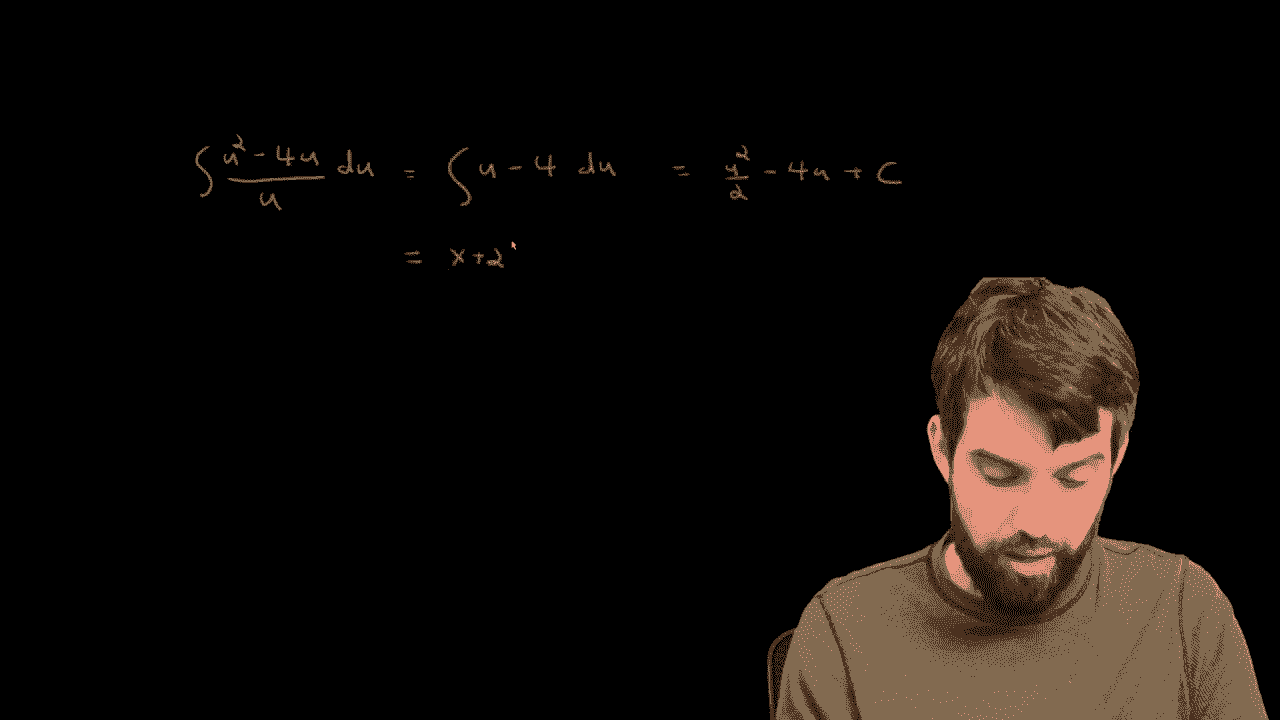 ∫ (u² - 4u)/u du = ∫ u - 4 du = u²/2 - 4u + C
= x+2